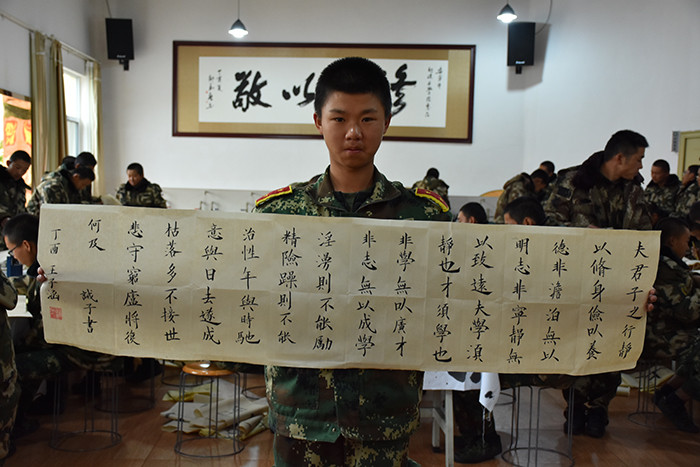 修 以敬
夫君子之行靜
以修身儉以養
德非澹泊無以
明志非寧靜無
以致遠夫學須
靜也才須學也
非學無以廣才
非志無以成學
淫則不能勵
精險躁則不能
治性年與時馳
意與日去遂成
枯落多不接世
悲守窮廬將復
何及 誡子書
丁酉 王